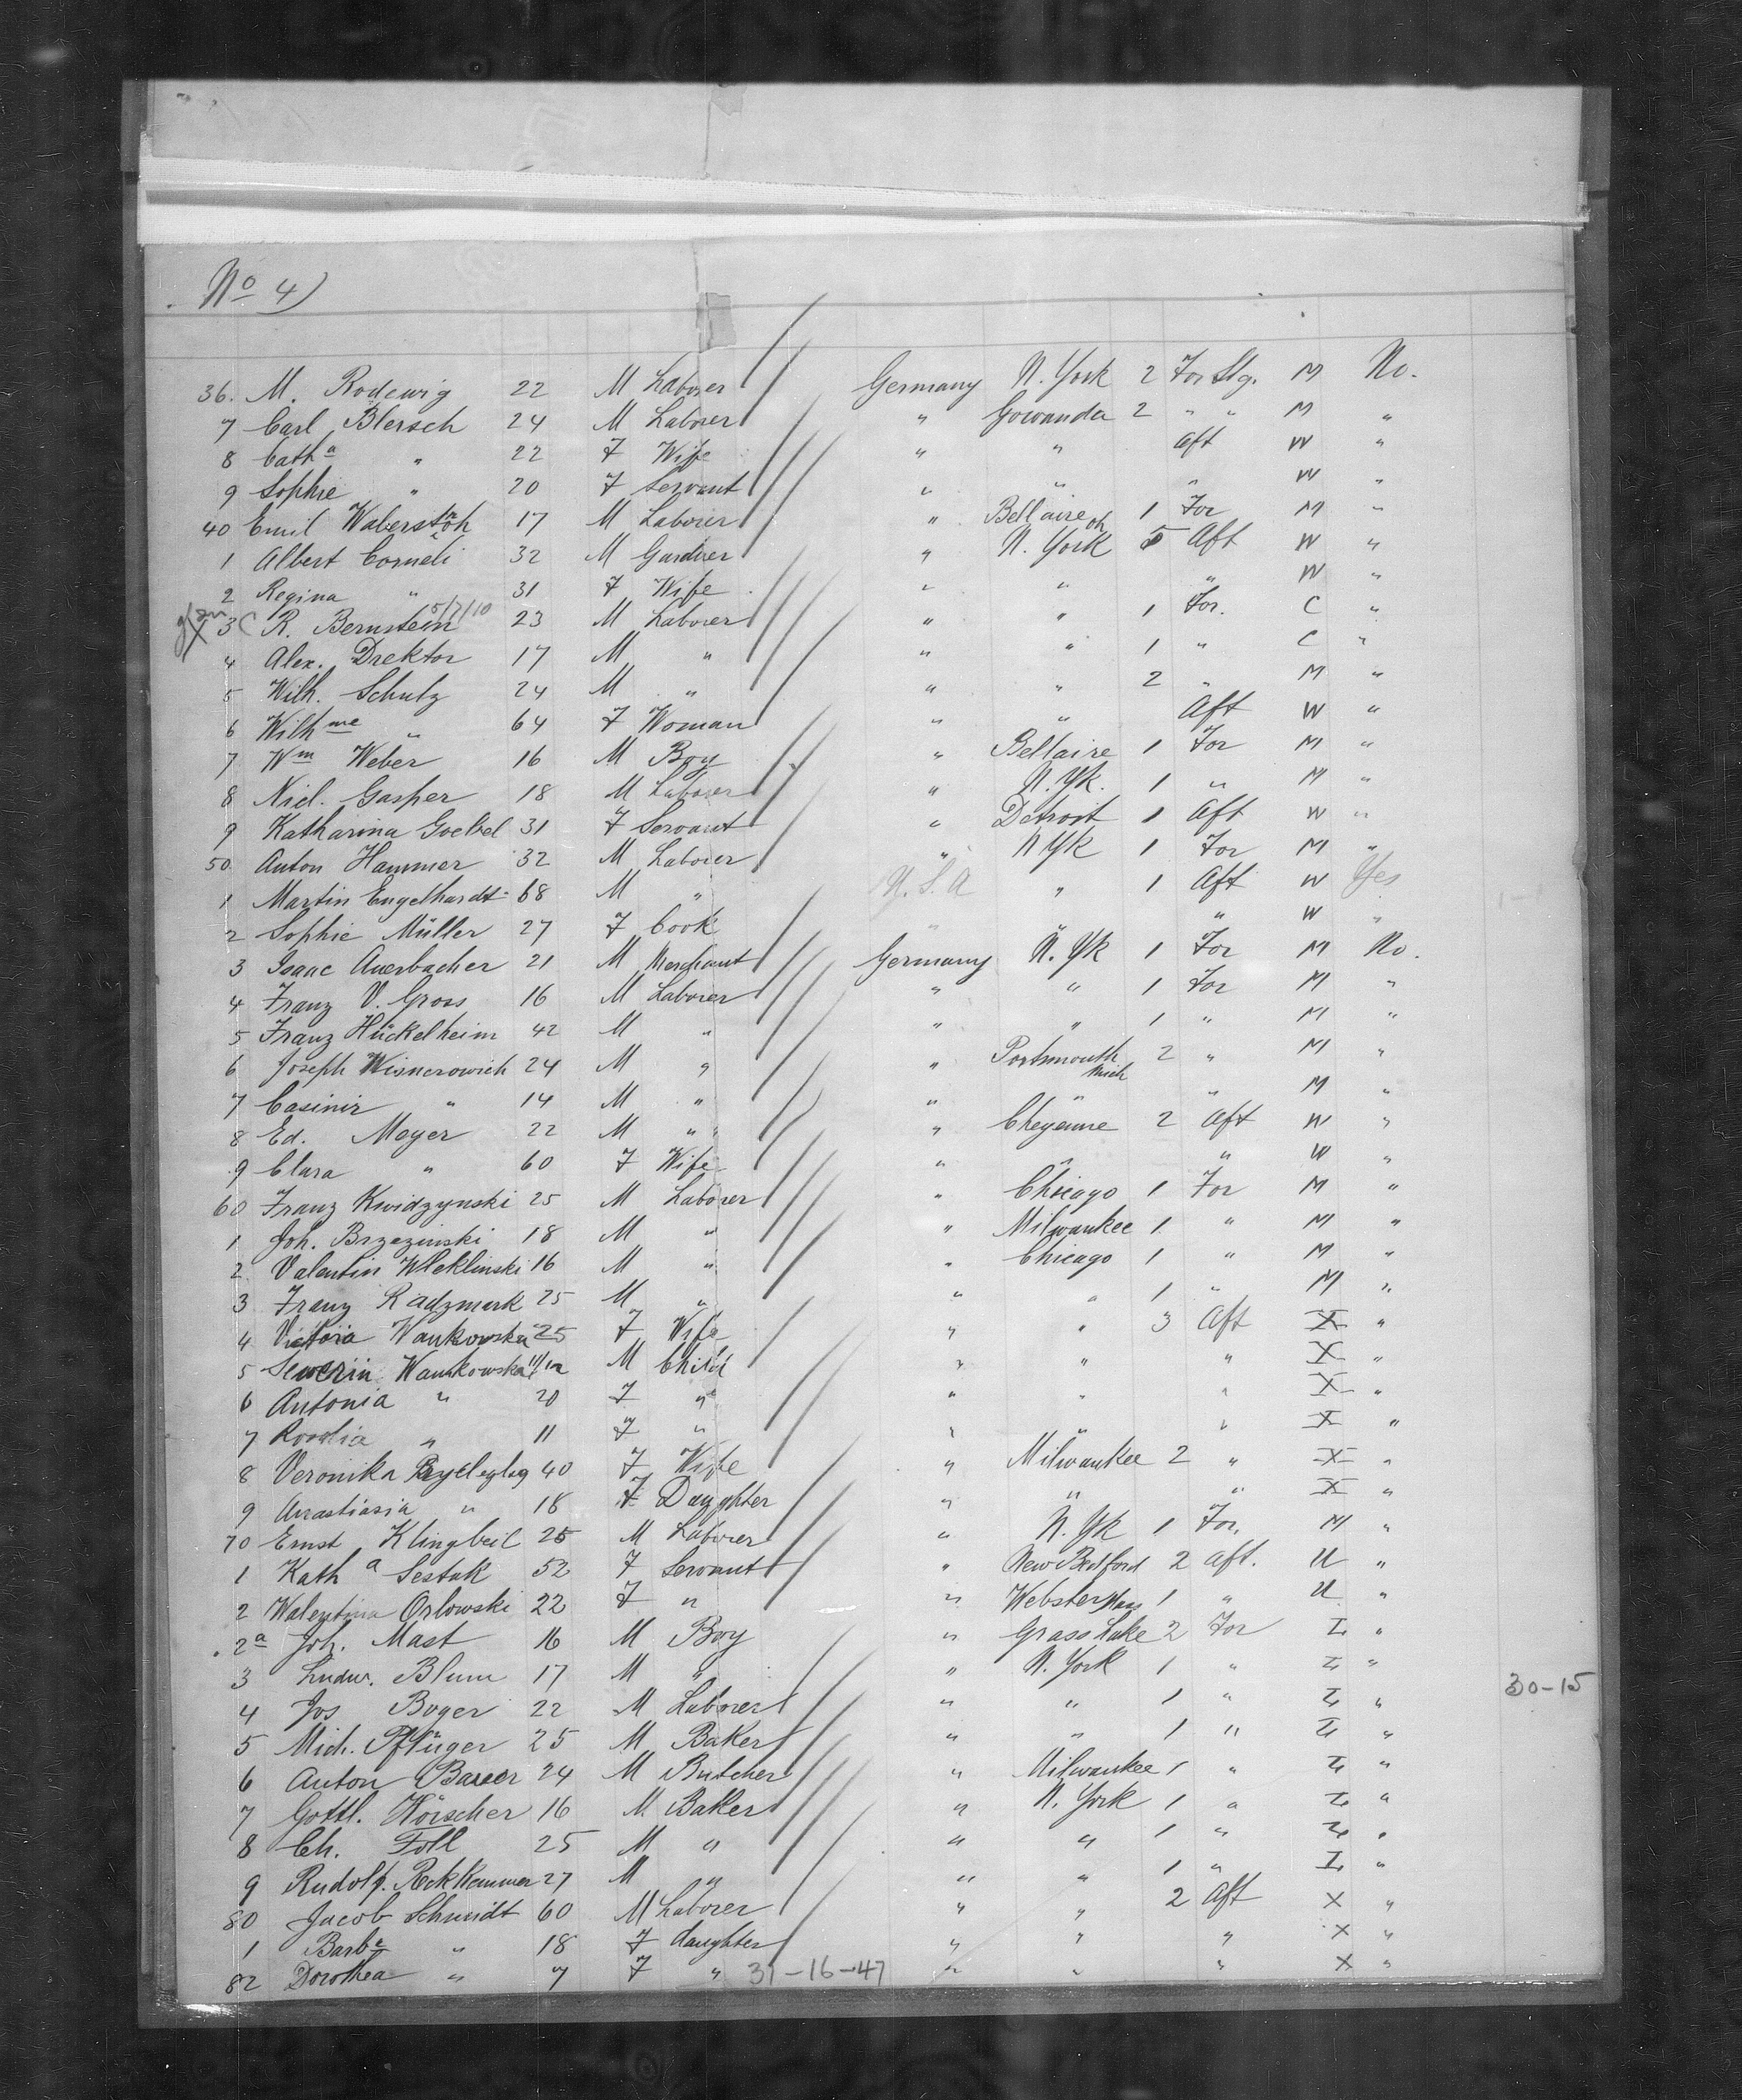 No 4)
36. M. Rodewig 22 M Laborer Germany N. York 2 For Stg. M No.
7 Carl Blersch 24 M Laborer " Gowanda 2 " " M "
8 Catha " 22 F Wife " " Aft W "
9 Sophie " 20 F Servant " " " W "
40 Emil 17 M Laborer " Bellaire oh 1 For M "
1 Albert Corneli 32 M Gardner " N. York 5 Aft W "
2 Regina " 31 F Wife " " " W "
3 C R. Bernstein 5/7/10 23 M Laborer " " 1 For. C "
4 Alex. Drektor 17 M " " " 1 " C "
5 Wilh. Schulz 24 M " " " 2 " M "
6 Wilhme " 64 F Woman " " Aft W "
7 Wm Weber 16 M Boy " Bellaire 1 For M "
8 Nicl. Gasper 18 M Laborer " N. Yk. 1 " M "
9 Katharina Goebel 31 F Servant " Detroit 1 Aft W "
50 Anton Hammer 32 M Laborer " N Yk 1 For M "
1 Martin Engelhardt 68 M " U.S.A " 1 Aft W Yes
2 Sophie Müller 27 F Cook " " " W "
3 Isaac Auerbacher 21 M Merchant Germany N. Yk 1 For M No.
4 Franz V. Gross 16 M Laborer " " 1 For M "
5 Franz Hückelheim 42 M " " " 1 " M "
6 Joseph Wisnerowich 24 M " " Portsmouth Mich 2 " M "
7 Casinir " 14 M " " " " M "
8 Ed. Meyer 22 M " " Cheyenne 2 Aft W "
9 Clara " 60 F Wife " " " W "
60 Franz Kwidzynski 25 M Laborer " Chicago 1 For M "
1 Joh. Brzezinski 18 M " " Milwaukee 1 " M "
2 Valentin Wleklinski 16 M " " Chicago 1 " M "
3 Franz Radzmark 25 M " " " 1 " M "
4 Victoria Wankowska 25 F Wife " " 3 Aft X "
5 Severin Wankowska 11/12 M Child " " " X "
6 Antonia " 20 F " " " " X "
7 Rosalia " 11 F " " " " X "
8 Veronika 40 F Wife " Milwaukee 2 " X "
9 Anastiasia " 18 F Daughter " " " X "
70 Ernst Klingbeil 25 M Laborer " N. Yk 1 For. M "
1 Katha Sestak 52 F Servant " New Bedford 2 Aft. U "
2 Walentina Orlowski 22 F " " Webster Mass 1 " U "
2a Joh. Mast 16 M Boy " Grass Lake 2 For L "
3 Ludw. Blum 17 M " " N. York 1 " L "
4 Jos Boger 22 M Laborer " " 1 " L " 30-15
5 Mich. Pflüger 25 M Baker " " 1 " L "
6 Anton Bauer 24 M Butcher " Milwaukee 1 " L "
7 Gottl. Hörscher 16 M Baker " N. York 1 " L "
8 Ch. Foll 25 M " " " 1 " L "
9 Rudolf. Rekkemmer 27 M " " " 1 " L "
80 Jacob Schmidt 60 M Laborer " " 2 Aft X "
1 Barba " 18 F daughter " " " X "
82 Dorothea " 7 F " 31-16-47 " " " X "